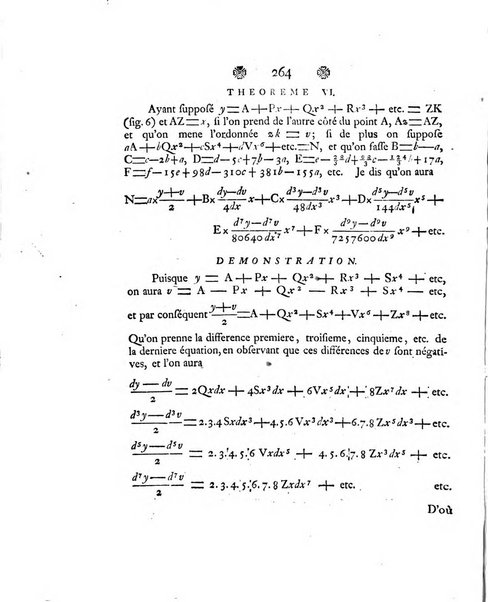 264
THEOREME VI.
Ayant supposé y = A + Px + Qx² + Rx³ + etc. = ZK
(fig. 6) et AZ = x, si l'on prend de l'autre côté du point A, Az = AZ,
et qu'on mene l'ordonnée zk = v; si de plus on suppose
aA + bQx² + cSx⁴ + dVx⁶ + etc. = N, et qu'on fasse B = b — a,
C = c — 2b + a, D = d — 5c + 7b — 3a, E = e —
d +
c —
+ 17a,
F = f — 15e + 98d — 310c + 381b — 155a, etc. Je dis qu'on aura
N = a × (y + v)/2 + B × (dy — dv)/4dx x + C × (d³y — d³v)/48dx³ x³ + D × (d⁵y — d⁵v)/144dx⁵ x⁵ +
E × (d⁷y — d⁷v)/80640dx⁷ x⁷ + F × (d⁹y — d⁹v)/7257600dx⁹ x⁹ + etc.
DEMONSTRATION.
Puisque y = A + Px + Qx² + Rx³ + Sx⁴ + etc.
on aura v = A — Px + Qx² — Rx³ + Sx⁴ + etc.
et par conséquent (y + v)/2 = A + Qx² + Sx⁴ + Vx⁶ + Zx⁸ + etc.
Qu'on prenne la difference premiere, troisieme, cinquieme, etc. de
la derniere équation, en observant que ces différences de v sont négati-
ves, et l'on aura
(dy — dv)/2 = 2Qxdx + 4Sx³dx + 6Vx⁵dx + 8Zx⁷dx + etc.
(d³y — d³v)/2 = 2.3.4Sxdx³ + 4.5.6Vx³dx³ + 6.7.8Zx⁵dx³ + etc.
(d⁵y — d⁵v)/2 = 2.3.4.5.6Vxdx⁵ + 4.5.6.7.8Zx³dx⁵ + etc.
(d⁷y — d⁷v)/2 = 2.3.4.5.6.7.8Zxdx⁷ + etc. etc.
D'où